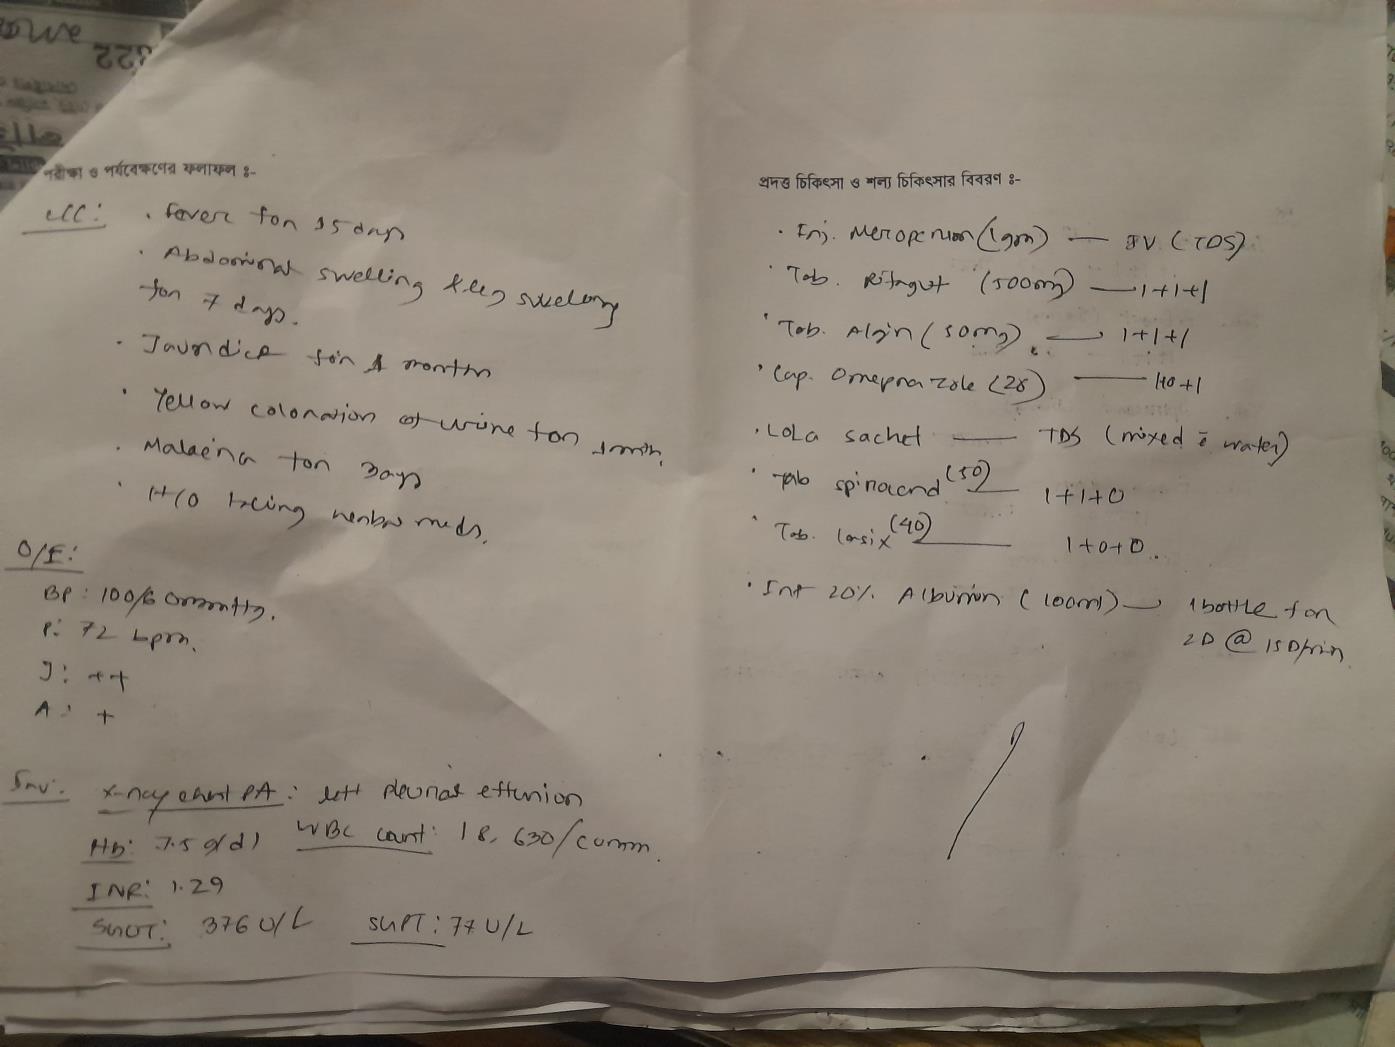 পরীক্ষা ও পর্যবেক্ষণের ফলাফল :-
c/c: . Fever for 15 days
. Abdominal swelling & leg swelling
for 7 days.
. Jaundice for 1 month
. Yellow coloration of urine for 1 month.
. Malaena for 3 days
. H/O taking herbal meds.
O/E:
BP: 100/60 mmHg.
P: 72 bpm.
J: ++
A: +
Inv: X-ray chest PA: left pleural effusion
Hb: 7.5 g/dl WBC count: 18,630/cumm.
INR: 1.29
SGOT: 376 U/L SGPT: 77 U/L
প্রদত্ত চিকিৎসা ও শল্য চিকিৎসার বিবরণ :-
. Inj. Meropenem (1gm) — IV (TDS)
. Tab. Rifagut (500mg) — 1+1+1
. Tab. Algin (50mg) — 1+1+1
. Cap. Omeprazole (20) — 1+0+1
. LOLA sachet — TDS (mixed c̄ water)
. Tab (50) — 1+1+0
. Tab. Lasix (40) — 1+0+0.
. Inf 20% Albumin (100ml) — 1 bottle for
2D @ 15D/min